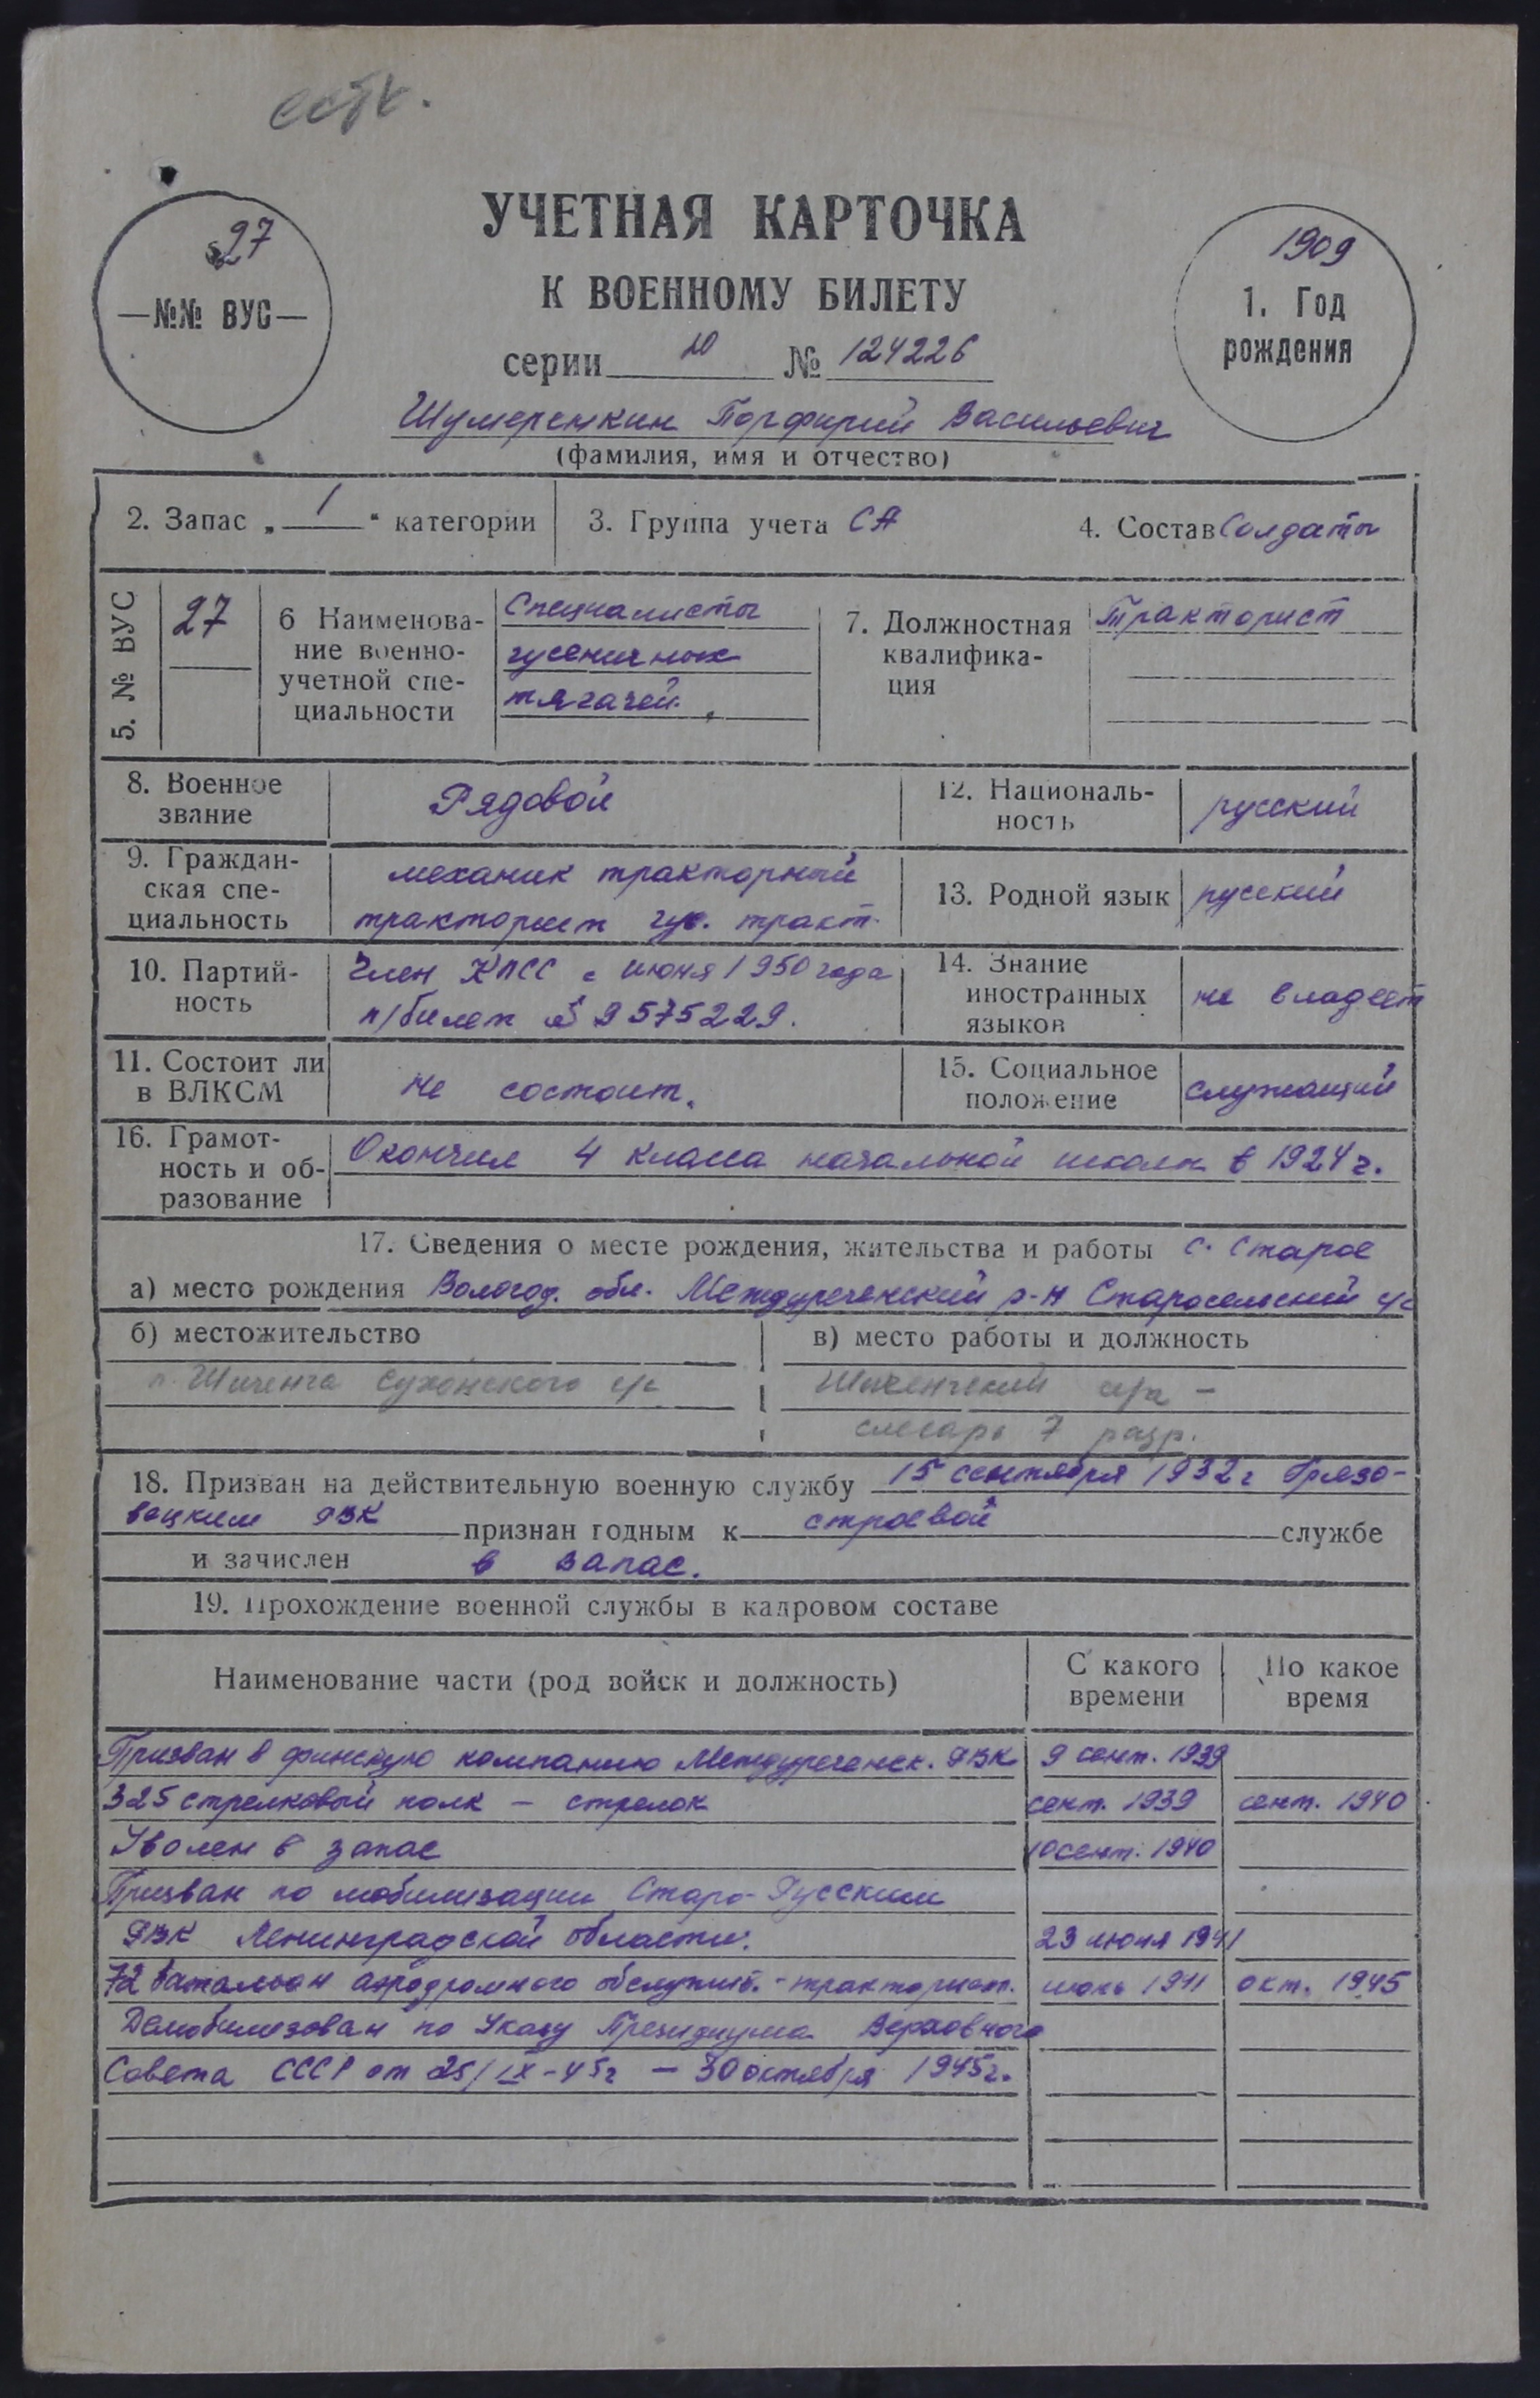 УЧЕТНАЯ КАРТОЧКА
К ВОЕННОМУ БИЛЕТУ
27
—№№ ВУС—
1909
1. Год
рождения
серии Ю № 124226
Порфирий Васильевич
(фамилия, имя и отчество)
2. Запас „ 1 “ категории
3. Группа учета СА
4. Состав Солдаты
5. № ВУС
27
6 Наименова-
ние военно-
учетной спе-
циальности
Специалисты
гусеничных
тягачей.
7. Должностная
квалифика-
ция
Тракторист
8. Военное
звание
Рядовой
12. Националь-
ность
русский
9. Граждан-
ская спе-
циальность
механик тракторный
тракторист гус. тракт.
13. Родной язык
русский
10. Партий-
ность
Член КПСС с июня 1950 года
п/билет № 9575229.
14. Знание
иностранных
языков
не владеет
11. Состоит ли
в ВЛКСМ
не состоит.
15. Социальное
положение
служащий
16. Грамот-
ность и об-
разование
Окончил 4 класса начальной школы в 1924 г.
17. Сведения о месте рождения, жительства и работы с. Старое
а) место рождения Вологод. обл. Междуреченский р-н Старосельский с/с
б) местожительство
п. Шиченга Сухонского с/с
в) место работы и должность
Шиченгский
слесарь 7 разр.
18. Призван на действительную военную службу 15 сентября 1932 г Грязо-
вецким РВК признан годным к строевой службе
и зачислен в запас.
19. Прохождение военной службы в кадровом составе
Наименование части (род войск и должность)
С какого
времени
По какое
время
Призван в финскую компанию Междуреченск. РВК 9 сент. 1939
325 стрелковый полк – стрелок сент. 1939 сент. 1940
Уволен в запас 10 сент. 1940
Призван по мобилизации Старо-Русским
РВК Ленинградской области. 23 июня 1941
72 батальон аэродромного обслужив. - тракторист. июнь 1941 окт. 1945
Демобилизован по Указу Президиума Верховного
Совета СССР от 25/IX-45г – 30 октября 1945г.